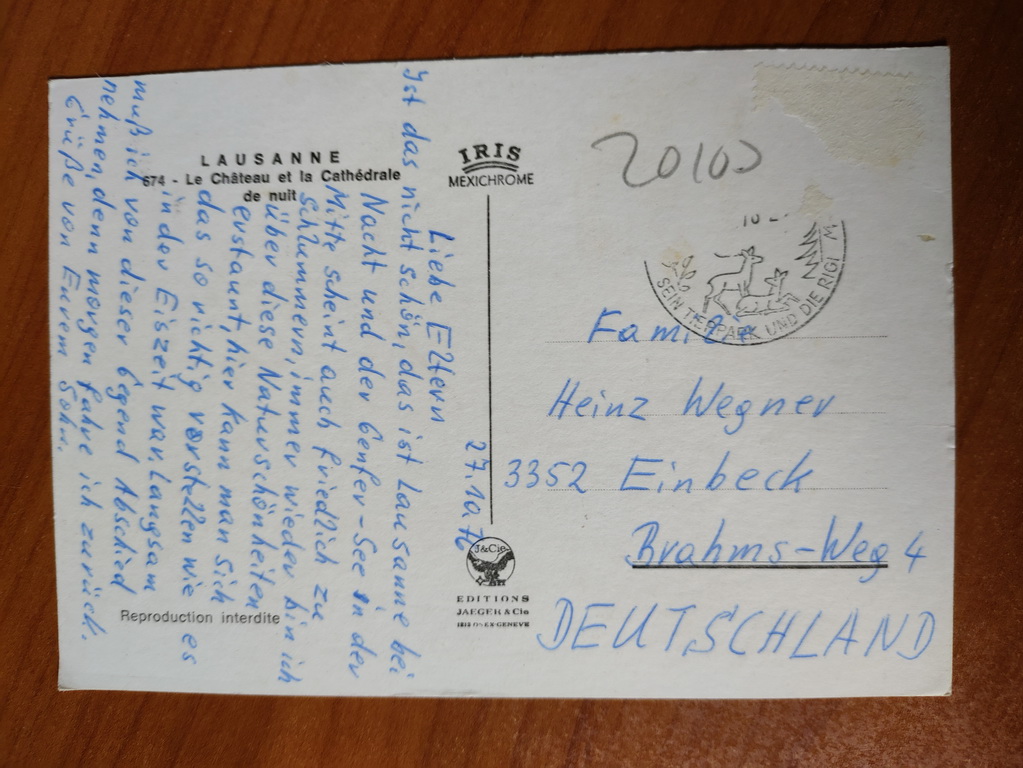 LAUSANNE
674 - Le Château et la Cathédrale
de nuit
IRIS
MEXICHROME
27.10.76
Liebe Eltern
Ist das nicht schön, das ist Lausanne bei
Nacht und der Genfer-See in der
Mitte scheint auch friedlich zu
schlummern, immer wieder bin ich
über diese Naturschönheiten
erstaunt, hier kann man sich
das so richtig vorstellen wie es
in der Eiszeit war. Langsam
muß ich von dieser Gegend Abschied
nehmen, denn morgen fahre ich zurück.
Grüße von Eurem Sohn.
20100
10
SEIN TIERPARK UND DIE RIGI
Familie
Heinz Wegner
3352 Einbeck
Brahms-Weg 4
DEUTSCHLAND
J&Cie
EDITIONS
JAEGER & Cie
GENÈVE
Reproduction interdite